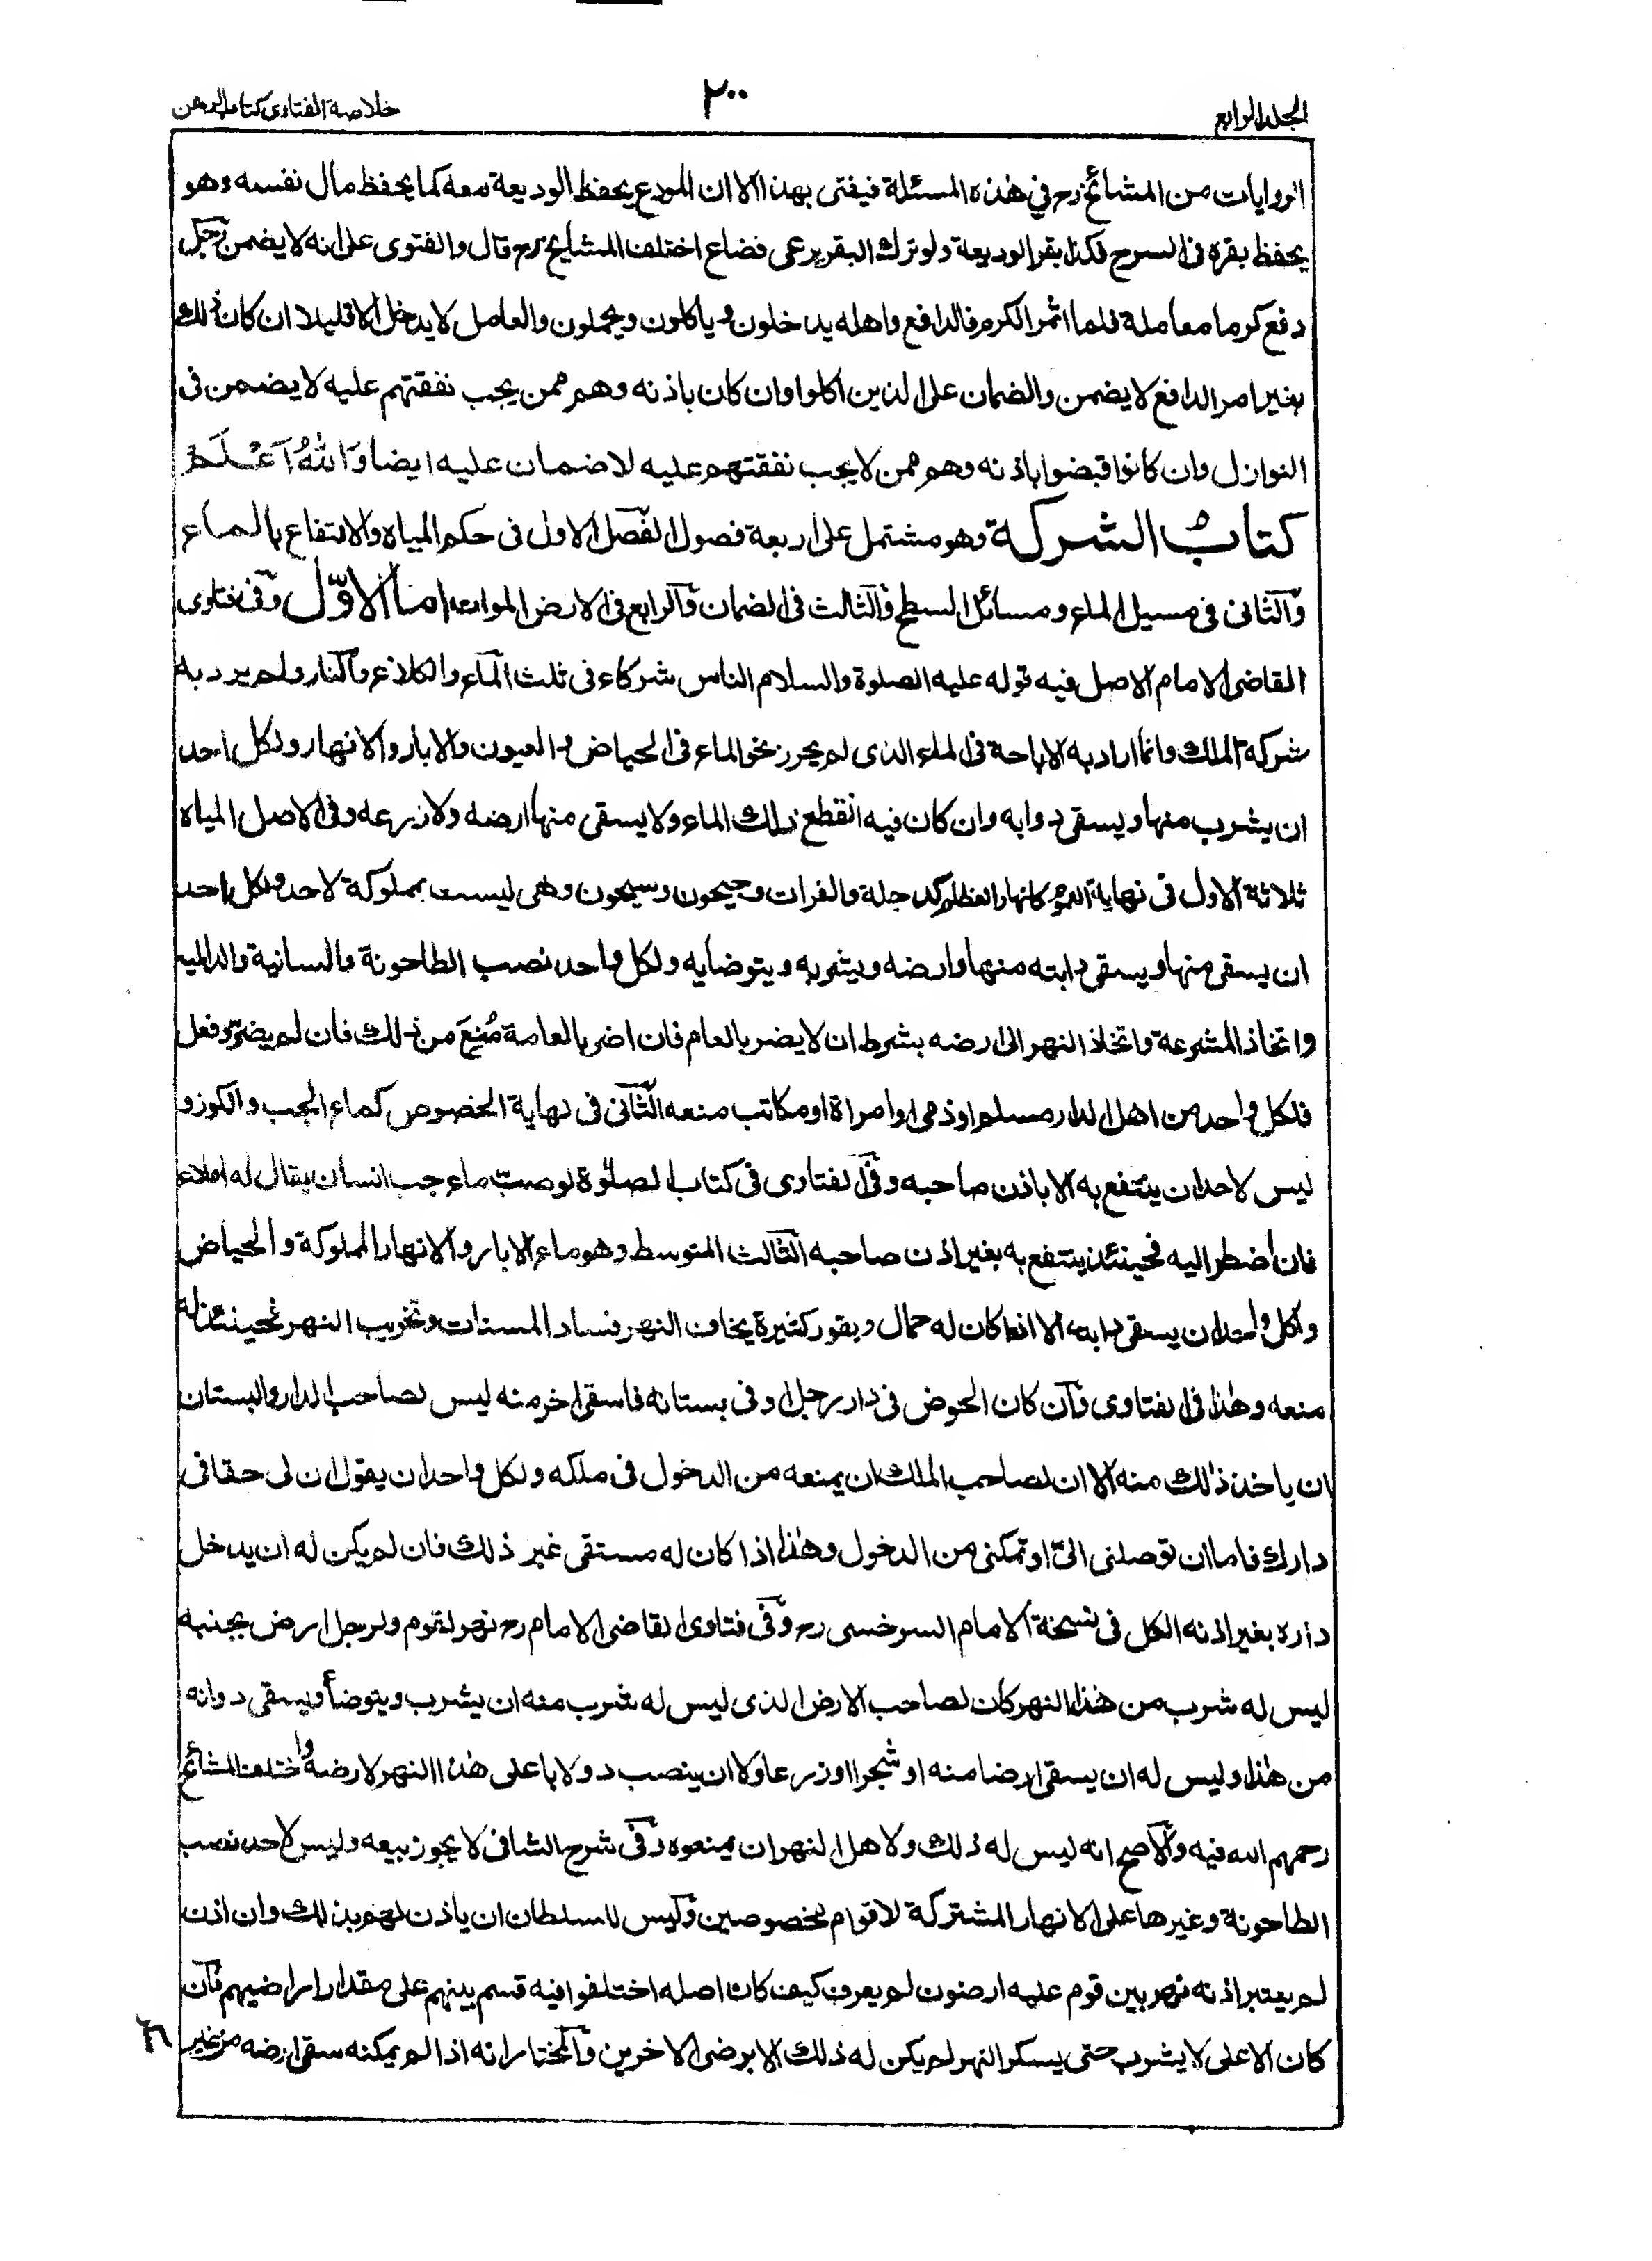 الجلد الرابع ٢٠٠ خلاصة الفتاوى كتاب الرهن
الروايات من المشائخ رح في هذه المسئلة فيفتى بهذا الا ان المودع يحفظ الوديعة معه كما يحفظ مال نفسه وهو
يحفظ بقره فى السرح فكذا بقر الوديعة ولو ترك البقر يرعى فضاع اختلف المشايخ رح قال والفتوى على انه لا يضمن رجل
دفع كرما معاملة فلما اثمر الكرم فالدافع واهله يدخلون و ياكلون ويحملون والعامل لا يدخل الا قليلا ان كان ذلك
بغير امر الدافع لا يضمن والضمان على الذين اكلوا وان كان باذنه وهم ممن يجب نفقتهم عليه لا يضمن فى
النوازل وان كانوا قبضوا باذنه وهم ممن لا يجب نفقتهم عليه لا ضمان عليه ايضا وَاللهُ اَعْلَم
كتاب الشركة وهو مشتمل على اربعة فصول الفصل الاول فى حكم المياه والانتفاع بالماء
والثانى فى مسيل الماء ومسائل السطح والثالث فى الضمان والرابع فى الارض الموات اما الاوّل وفى فتاوى
القاضى الامام الاصل فيه قوله عليه الصلوة والسلام الناس شركاء فى ثلث الماء والكلاء والنار ولم يرد به
شركة الملك وانما اراد به الاباحة فى الماء الذى لم يحرز نحو الماء فى الحياض و العيون والابار والانهار ولكل احد
ان يشرب منها ويسقى دوابه وان كان فيه انقطع ذلك الماء ولا يسقى منها ارضه ولا زرعه وفى الاصل المياه
ثلاثة الاول فى نهاية العموم كانهار العظام كدجلة والفرات وجيحون وسيحون وهى ليست بمملوكة لاحد ولكل احد
ان يسقى منها ويسقى دابته منها وارضه ويشربه ويتوضا به ولكل واحد نصب الطاحونة والسانية والدالية
واتخاذ المشرعة واتخاذ النهر الى ارضه بشرط ان لا يضر بالعام فان اضر بالعامة مُنِعَ من ذلك فان لم يضرّ وفعل
فلكل واحد من اهل الدار مسلم او ذمى او امراة او مكاتب منعه الثانى فى نهاية الخصوص كماء الجب والكوز و
ليس لاحد ان ينتفع به الا باذن صاحبه وفى الفتاوى فى كتاب الصلوة لو صبّ ماء جب انسان يقال له املاء
فان اضطر اليه فحينئذ ينتفع به بغير اذن صاحبه الثالث المتوسط وهو ماء الابار والانهار المملوكة والحياض
ولكل واحد ان يسقى دابته الا اذا كان له جمال و بقور كثيرة يخاف النهر فساد المسنات وتخريب النهر فحينئذ له
منعه وهذا فى الفتاوى وان كان الحوض فى دار رجل او فى بستانه فاسقى اخر منه ليس لصاحب الدار والبستان
ان ياخذ ذلك منه الا ان لصاحب الملك ان يمنعه من الدخول فى ملكه ولكل واحد ان يقول ان لى حقا فى
دارك فاما ان توصلنى الىّ او تمكنى من الدخول وهذا اذا كان له مستقى غير ذلك فان لم يكن له ان يدخل
داره بغير اذنه الكل فى نسخة الامام السرخسى رح وفى فتاوى القاضى الامام رح نهر لقوم ولرجل ارض بجنبه
ليس له شرب من هذا النهر كان لصاحب الارض الذى ليس له شرب منه ان يشرب ويتوضأ ويسقى دوابه
من هذا وليس له ان يسقى ارضا منه او شجرا او زرعا ولا ان ينصب دولابا على هذا النهر لارضه واختلف المشائخ
رحمهم الله فيه والاصح انه ليس له ذلك ولا هل النهر ان يمنعوه وفى شرح الشافى لا يجوز بيعه وليس لاحد نصب
الطاحونة وغيرها على الانهار المشتركة لاقوام مخصوصين وليس للسلطان ان ياذن لهم بذلك وان اذن
لم يعتبر اذنه نهر بين قوم عليه ارضون لم يعرف كيف كان اصله اختلفوا فيه قسم بينهم على مقدار اراضيهم فان
كان الاعلى لا يشرب حتى يسكر النهر لم يكن له ذلك الا برضى الاخرين والمختار انه اذا لم يمكنه سقى ارضه من غير